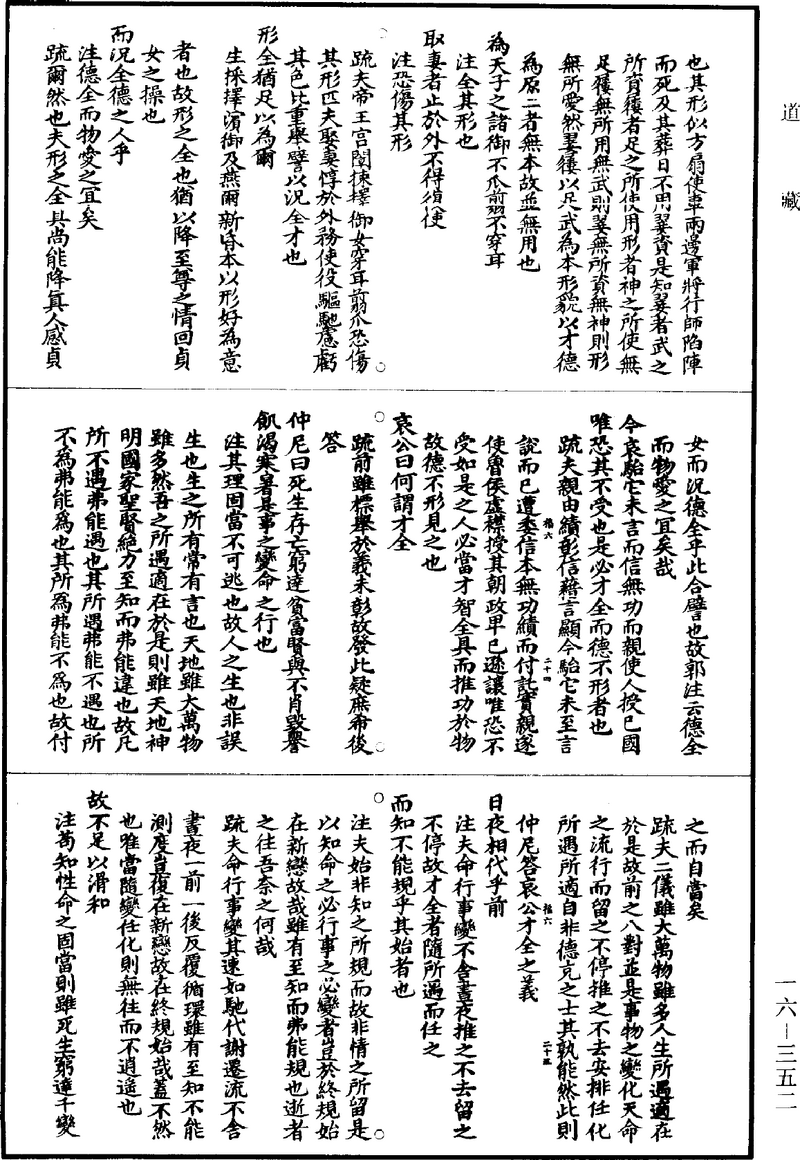 道藏
也其形似方扇使車兩邊軍將行師陷陣
而死及其葬日不用翣資是知翣者武之
所資屨者足之所使用形者神之所使無
足屨無所用無武則翣無所資無神則形
無所愛然翣屨以足武為本形貌以才德
為原二者無本故並無用也
為天子之諸御不爪翦不穿耳
注全其形也
取妻者止於外不得復使
注恐傷其形
疏夫帝王宮闈揀擇御女穿耳翦爪恐傷
其形匹夫娶妻停於外務使役驅馳慮虧
其色此重舉譬以況全才也
形全猶足以為爾
生採擇濱御及燕爾新昏本以形好為意
者也故形之全也猶以降至尊之情回貞
女之操也
而況全德之人乎
注德全而物愛之宜矣
疏爾然也夫形之全具尚能降真人感貞
女而況德全乎此合譬也故郭注云德全
而物愛之宜矣哉
今哀駘它未言而信無功而親使人授已國
唯恐其不受也是必才全而德不形者也
疏夫親由績彰信藉言顯今駘它未至言
說而已遭委信本無功績而付託實親遂
使魯侯虛襟授其朝政早已遜讓唯恐不
受如是之人必當才智全具而推功於物
故德不形見之也
哀公曰何謂才全
疏前雖標舉於義未彰故發此疑庶希後
答
仲尼曰死生存亡窮達貧富賢與不肖毀譽
飢渴寒暑是事之變命之行也
注其理固當不可逃也故人之生也非誤
生也生之所有常有言也天地雖大萬物
雖多然吾之所遇適在於是則雖天地神
明國家聖賢絕力至知而弗能違也故凡
所不遇弗能遇也其所遇弗能不遇也所
不為弗能為也其所為弗能不為也故付
之而自當矣
疏夫二儀雖大萬物雖多人生所遇適在
於是故前之八對並是事物之變化天命
之流行而留之不停推之不去安排任化
所遇所適自非德充之士其孰能然此則
仲尼答哀公才全之義
日夜相代乎前
注夫命行事變不舍晝夜推之不去留之
不停故才全者隨所遇而任之
而知不能規乎其始者也
注夫始非知之所規而故非情之所留是
以知命之必行事之必變者豈於終規始
在新戀故哉雖有至知而弗能規也逝者
之往吾奈之何哉
疏夫命行事變其速如馳代謝遷流不舍
晝夜一前一後反覆循環雖有至知不能
測度豈復在新戀故在終規始哉蓋不然
也唯當隨變任化則無往而不逍遙也
故不足以滑和
注苟知性命之固當則雖死生窮達千變
一六－三五二